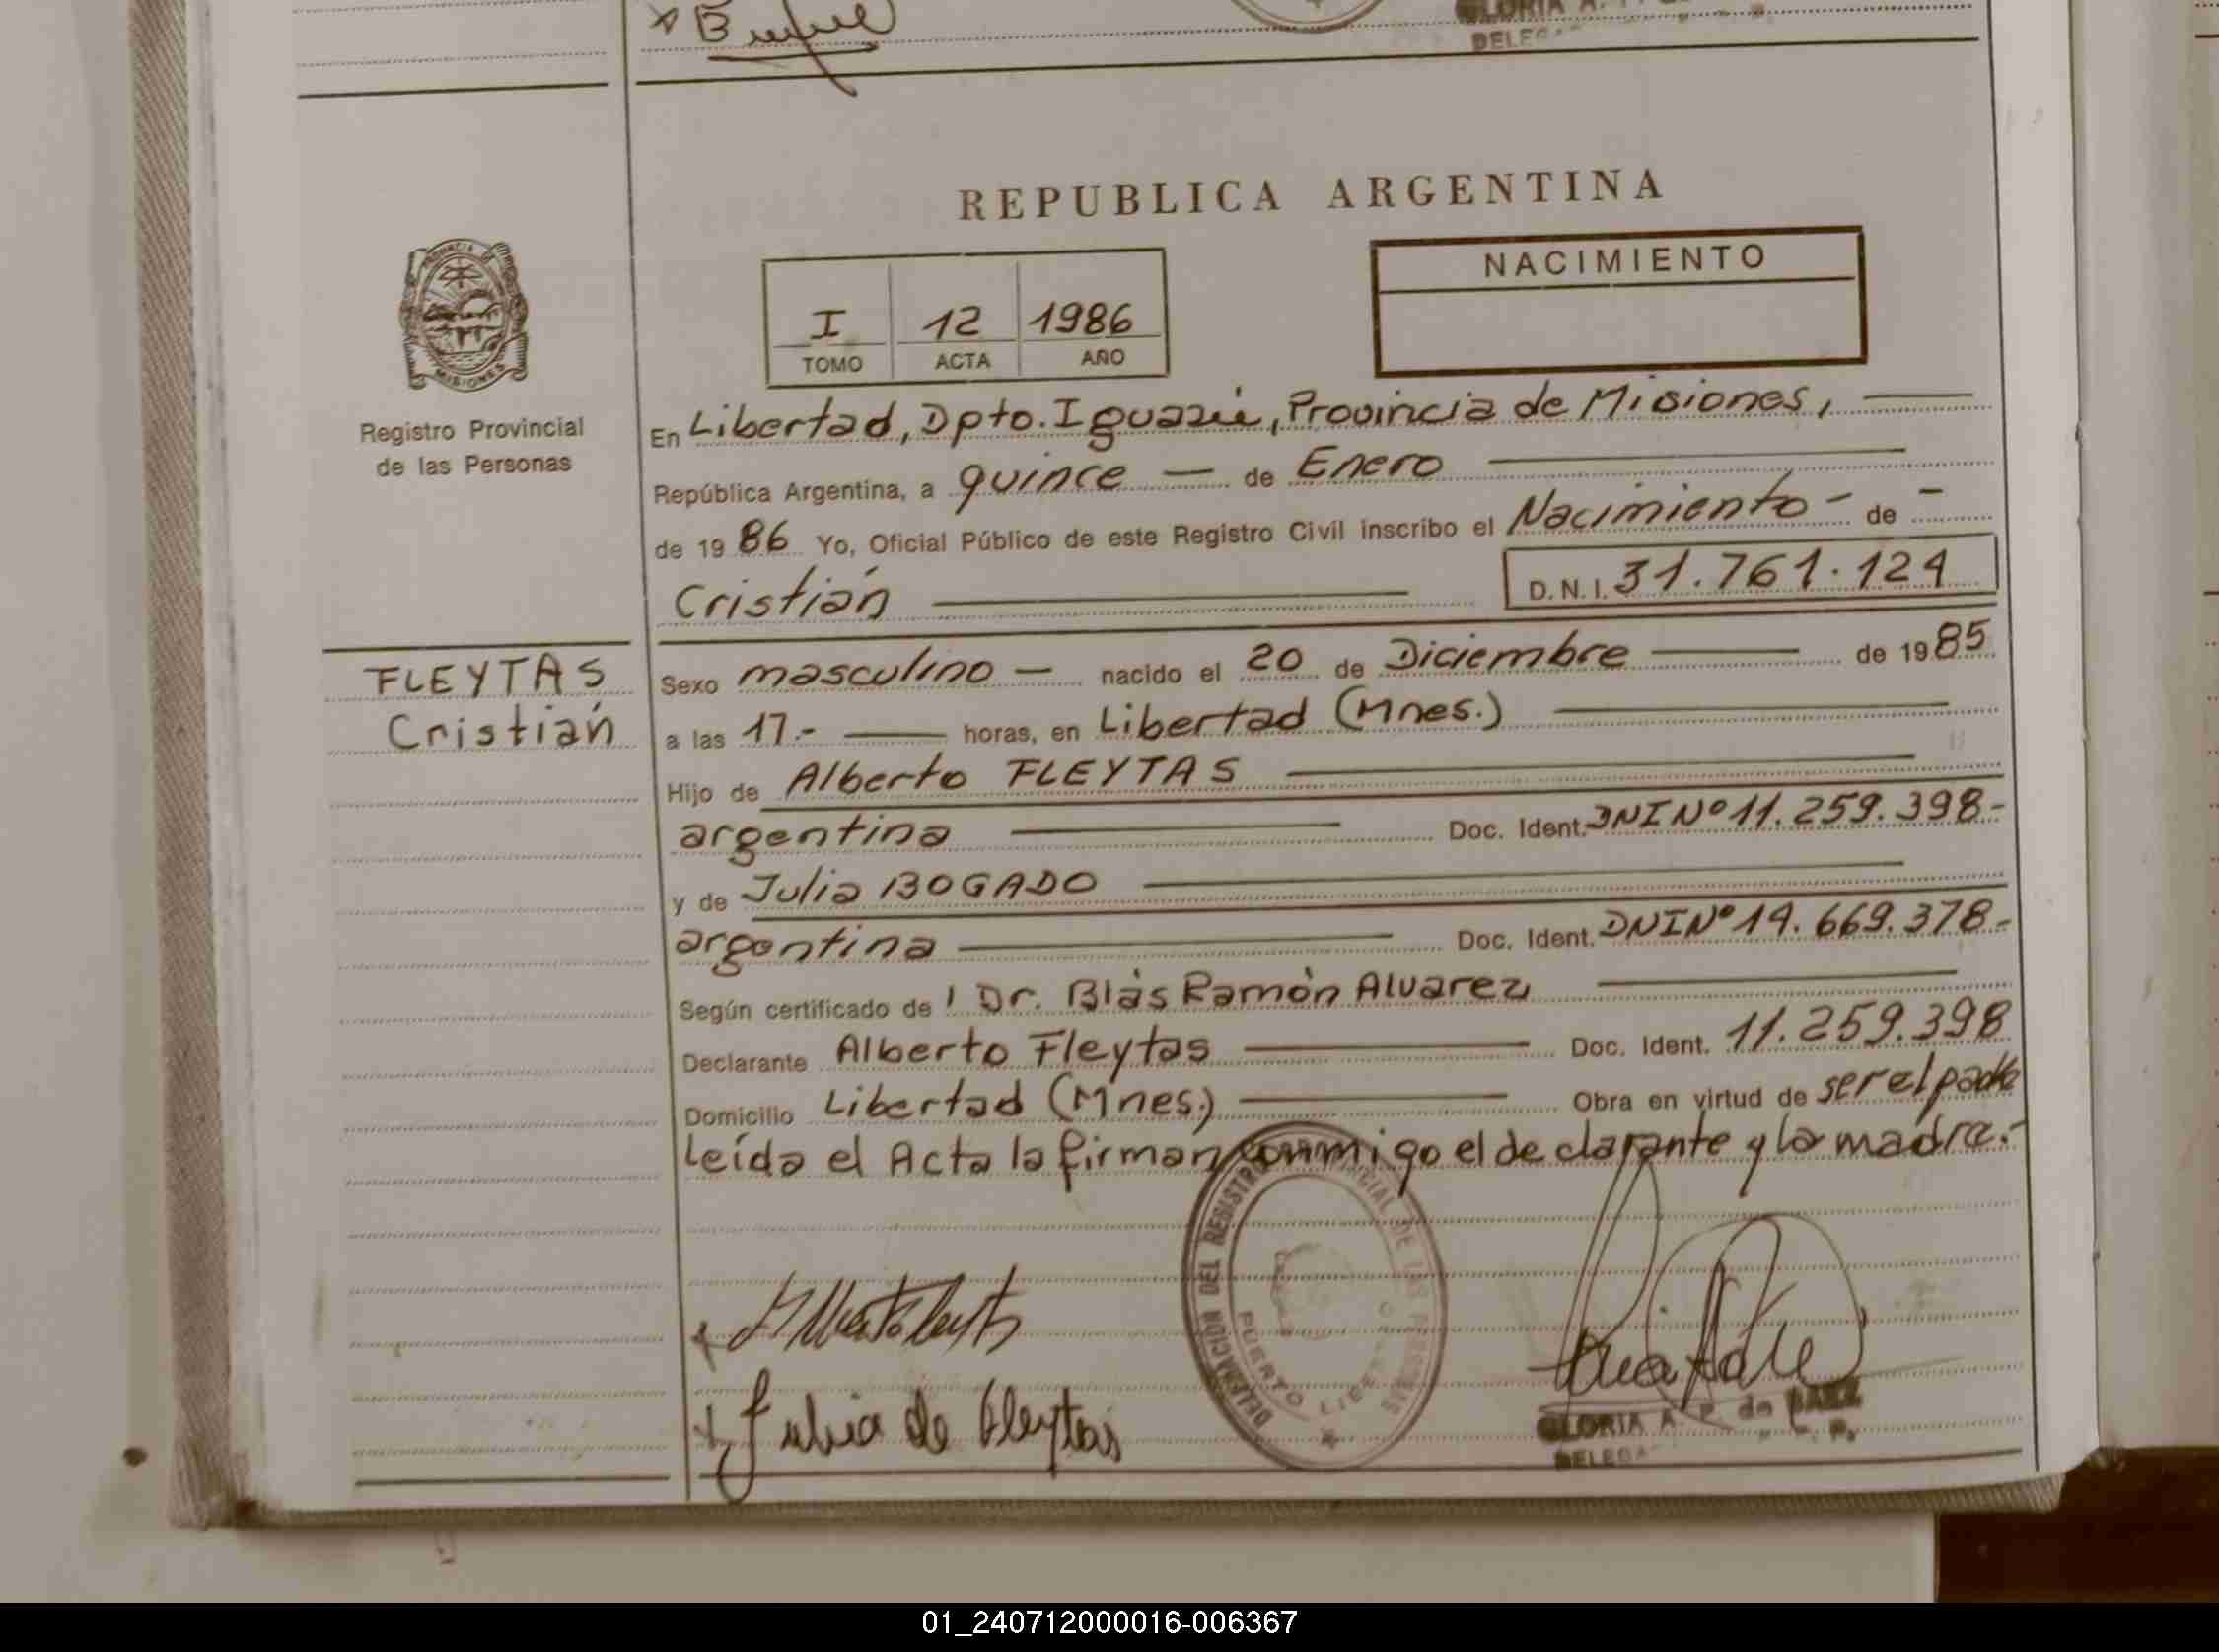 REPUBLICA ARGENTINA
PROVINCIA
MISIONES
Registro Provincial
de las Personas
NACIMIENTO
I 12 1986
TOMO ACTA AÑO
En Libertad, Dpto. Iguazú, Provincia de Misiones,
República Argentina, a quince — de Enero
de 19 86 Yo, Oficial Público de este Registro Civil inscribo el Nacimiento - de -
Cristián D.N.I. 31.761.124
FLEYTAS
Cristián
Sexo masculino — nacido el 20 de Diciembre de 19 85
a las 17.- horas, en Libertad (Mnes.)
Hijo de Alberto FLEYTAS
argentina Doc. Ident. DNI Nº 11.259.398-
y de Julia BOGADO
argentina Doc. Ident. DNI Nº 14.669.378-
Según certificado de l Dr. Blás Ramón Alvarez
Declarante Alberto Fleytas Doc. Ident. 11.259.398
Domicilio Libertad (Mnes.) Obra en virtud de ser el padre
Leída el Acta la firman conmigo el declarante y la madre.-
DELEGACION DEL REGISTRO PROVINCIAL DE LAS PERSONAS
PUERTO LIBERTAD
Julia de Fleytas
GLORIA A. P. de BAEZ
01_240712000016-006367